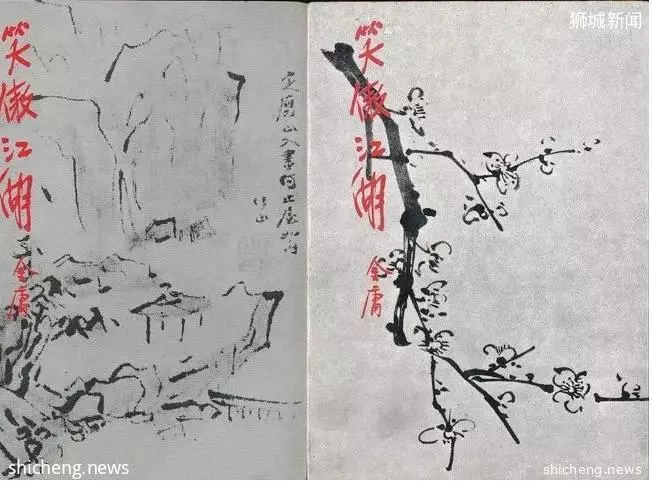 狮城新闻
笑傲江湖
金庸
笑傲江湖
金庸
shicheng.news
shicheng.news